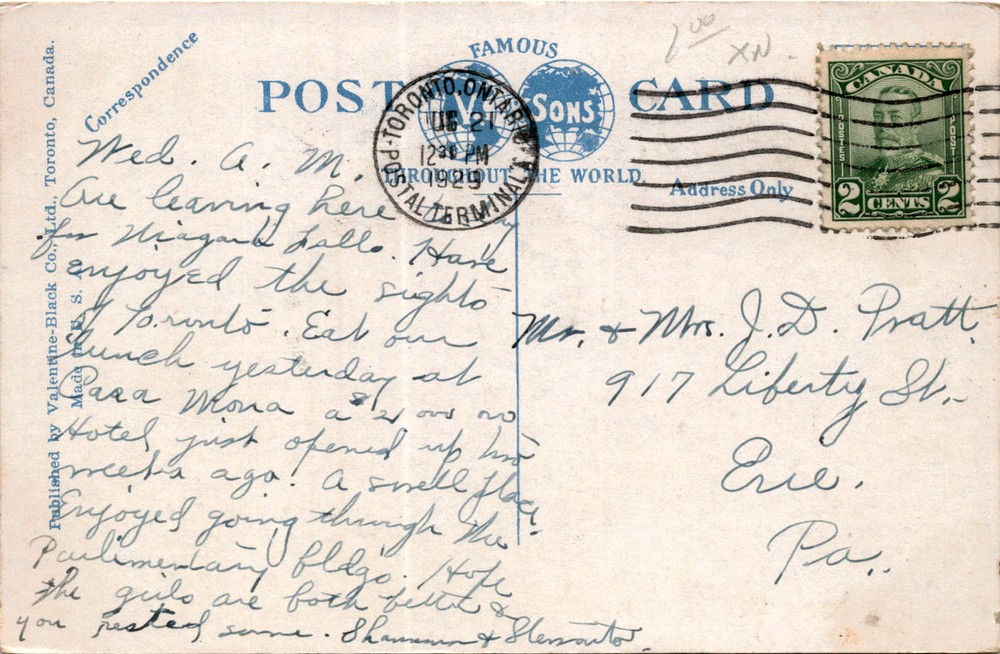 Published by Valentine-Black Co., Ltd., Toronto, Canada.
Made in U. S. A.
Correspondence
FAMOUS
POST CARD
SONS
THROUGHOUT THE WORLD
Address Only
TORONTO, ONTARIO
21
12 PM
1929
POSTAL TERMINAL A
CANADA
POSTES
POSTAGE
2 CENTS 2
2.00
XN
Wed. A. M.
Are leaving here
for Niagara Falls. Have
enjoyed the sights
of Toronto. Eat our
lunch yesterday at
a
Hotel just opened up two
weeks ago. A swell place.
Enjoyed going through the
Parlimentary bldgs. Hope
the girls are both better &
you rested some.
Mr. & Mrs. J. D. Pratt
917 Liberty St.
Erie.
Pa.